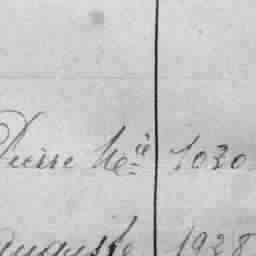 Pierre Né.ie 1030
Auguste 1928